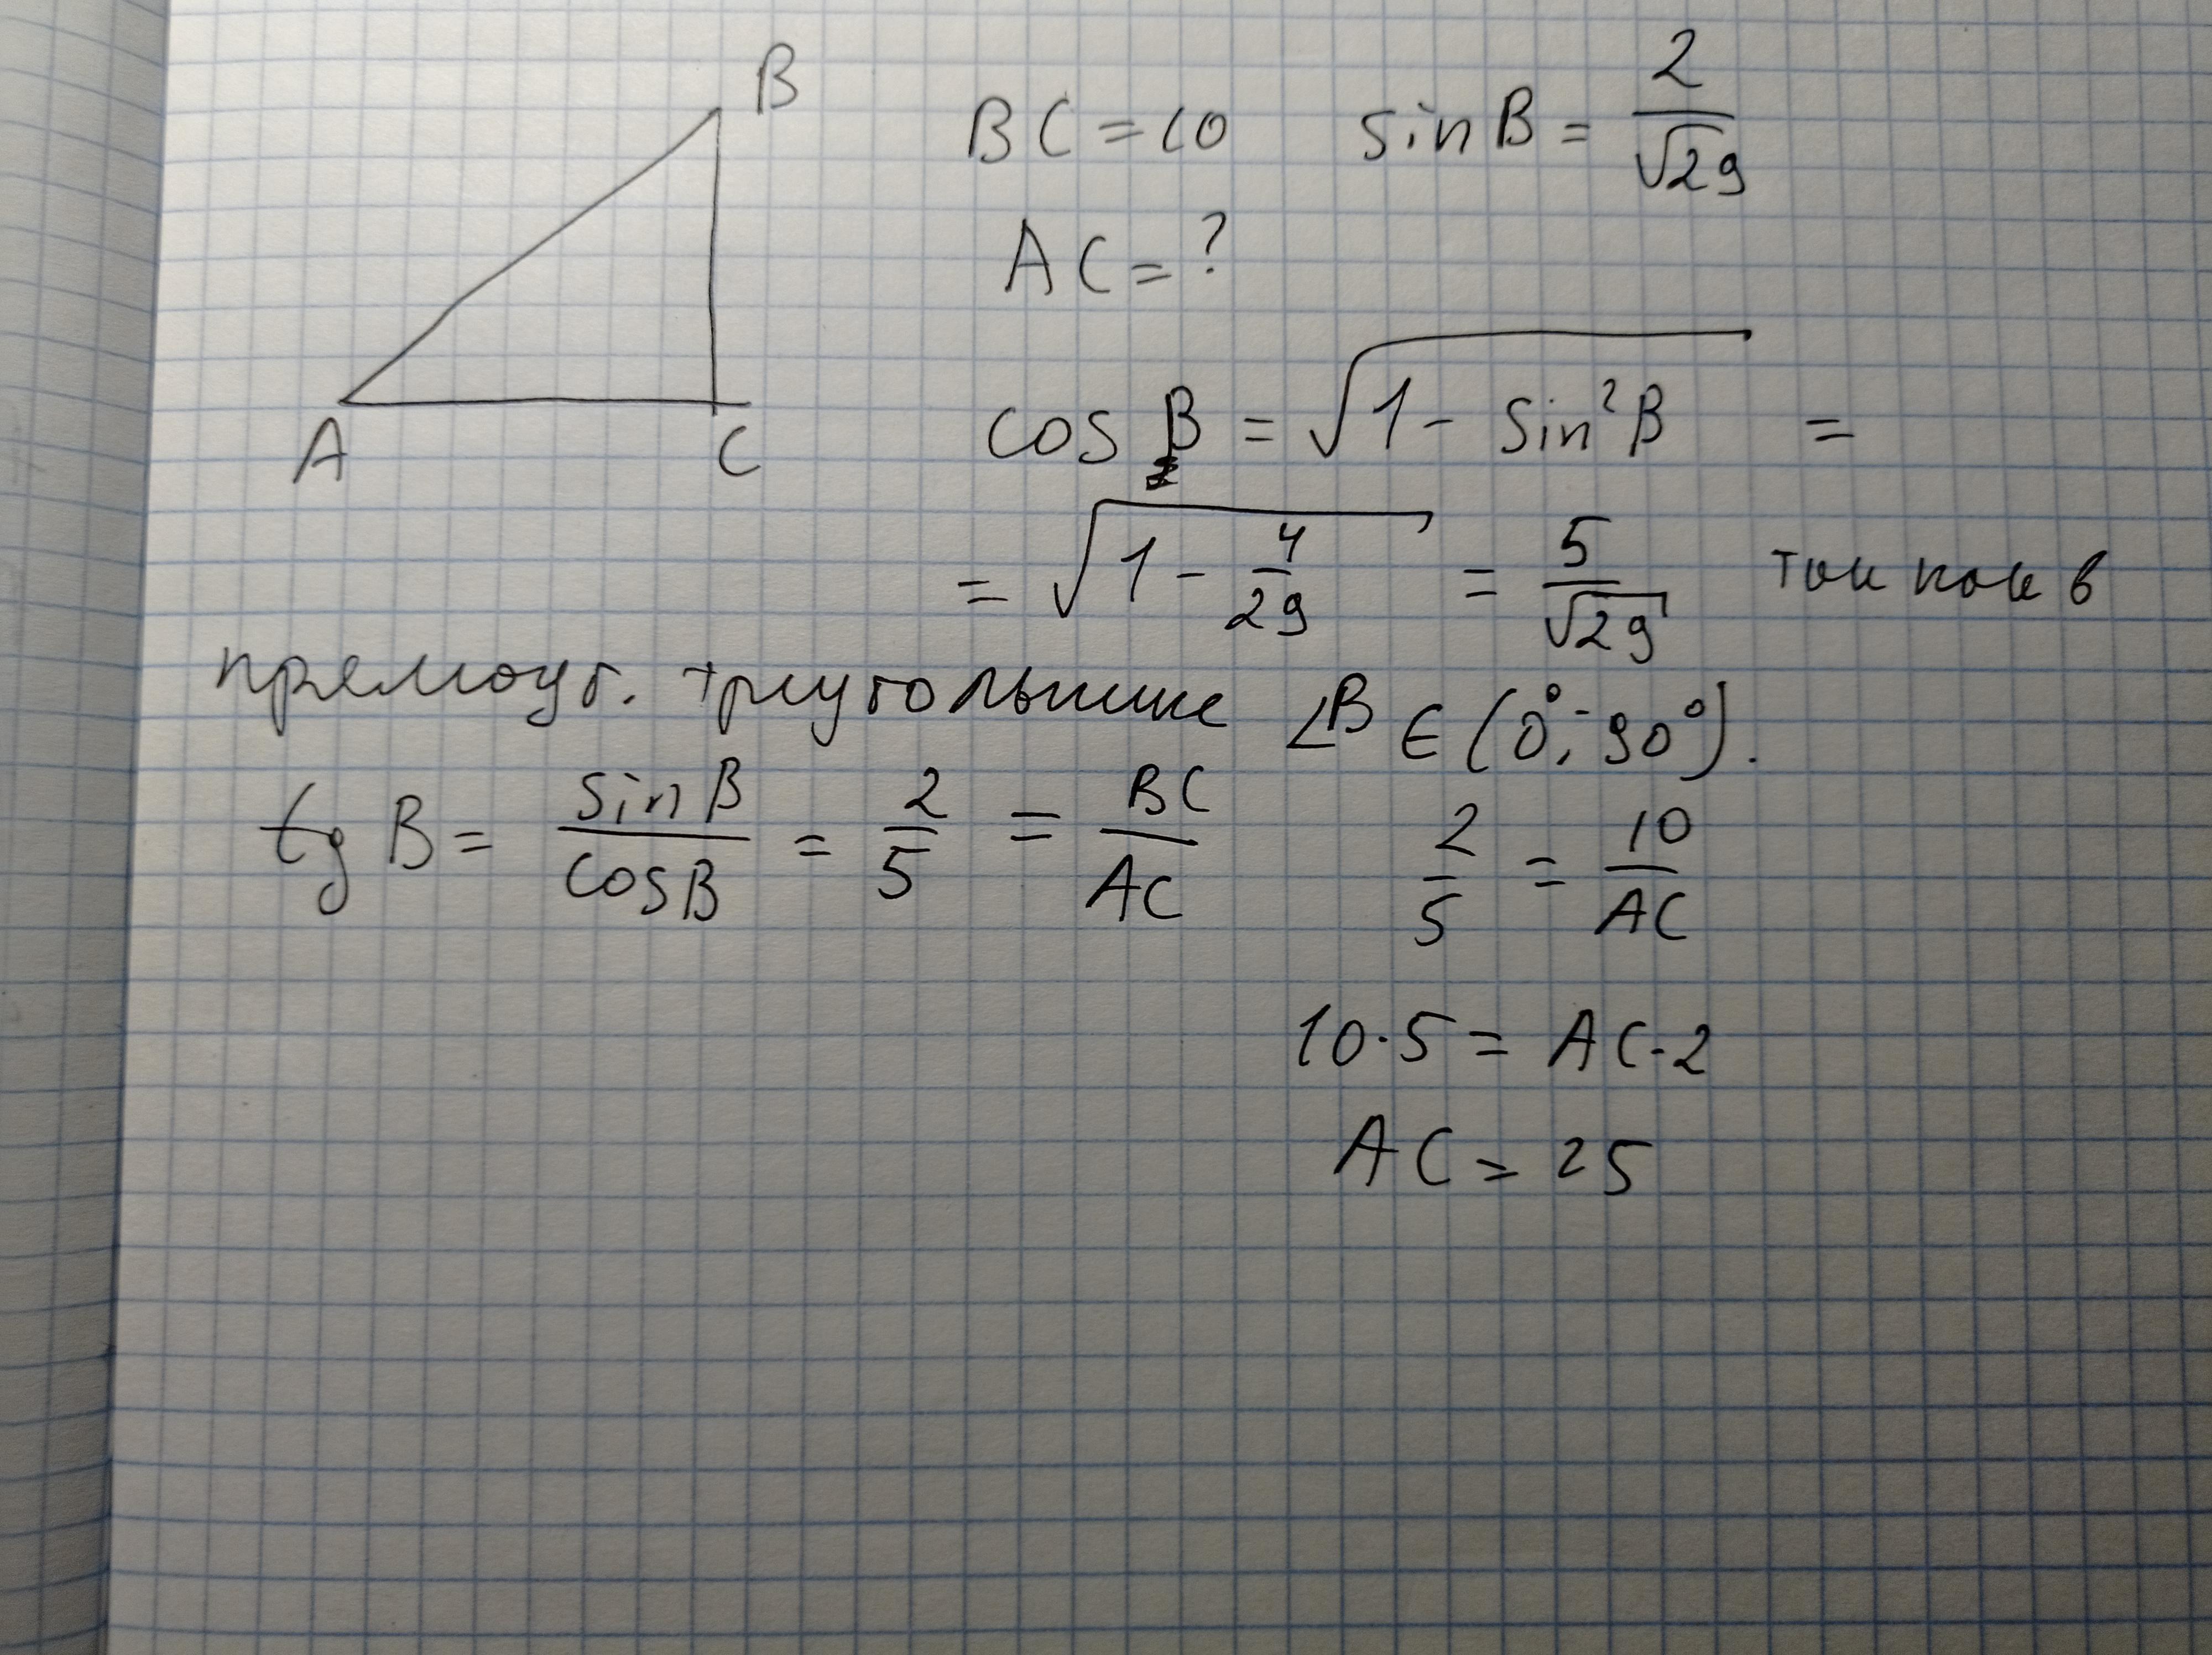 B
A
C
BC = 10 sin B = 2/√29
AC = ?
cos B = √(1 - sin²B) =
= √(1 - 4/29) = 5/√29 так как в
прямоуг. треугольнике ∠B ∈ (0°; 90°).
tg B = sin B/cos B = 2/5 = BC/AC 2/5 = 10/AC
10·5 = AC·2
AC = 25